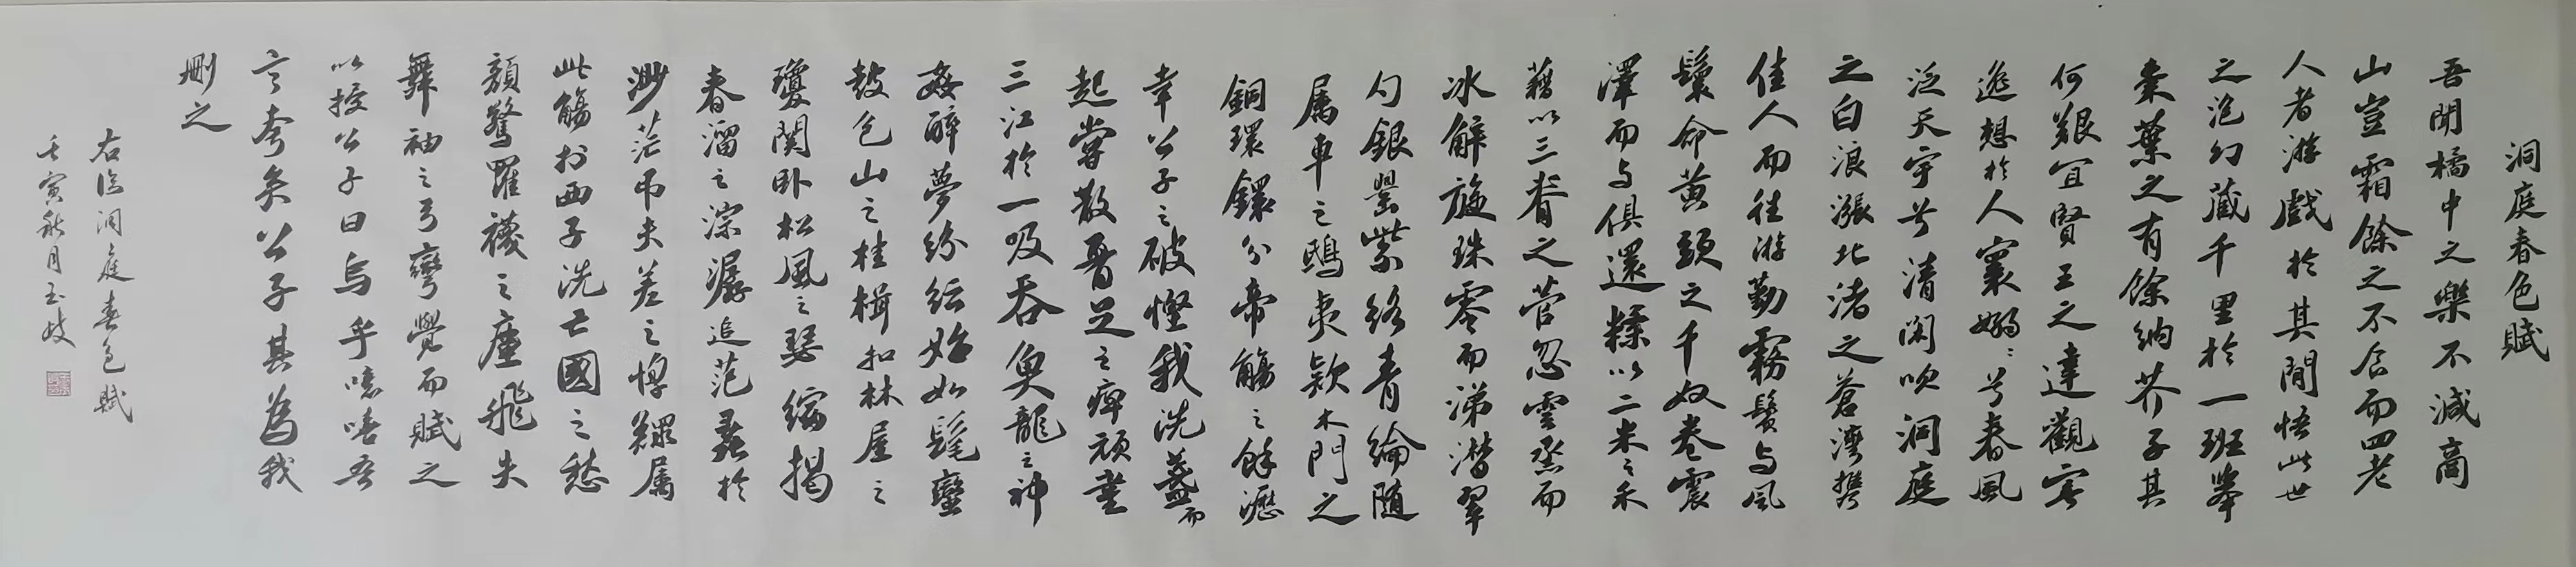 洞庭春色賦
吾聞橘中之樂不減商
山豈霜餘之不食而四老
人者游戲於其間悟此世
之泡幻藏千里於一班舉
棗葉之有餘納芥子其
何艱宜賢王之達觀寄
逸想於人寰嫋〻兮春風
泛天宇兮清閑吹洞庭
之白浪漲北渚之蒼灣携
佳人而往游勤霧鬢与風
鬟命黃頭之千奴卷震
澤而与俱還糅以二米之禾
藉以三脊之菅忽雲烝而
冰解旋珠零而涕潸翠
勺銀罌紫絡青綸随
属車之鴟夷欵木門之
銅環鐶分帝觴之餘瀝
幸公子之破慳我洗盞而
起嘗散腰足之痺頑盡
三江於一吸吞魚龍之神
姦醉夢紛紜始如髦蠻
鼓包山之桂楫扣林屋之
瓊関卧松風之瑟縮揭
春溜之淙潺追范蠡於
渺茫吊夫差之惸鰥属
此觴於西子洗亡國之愁
顏驚羅襪之塵飛失
舞袖之弓彎覺而賦之
以授公子曰烏乎噫嘻吾
言夸矣公子其為我
刪之
右临洞庭春色賦
壬寅秋月玉